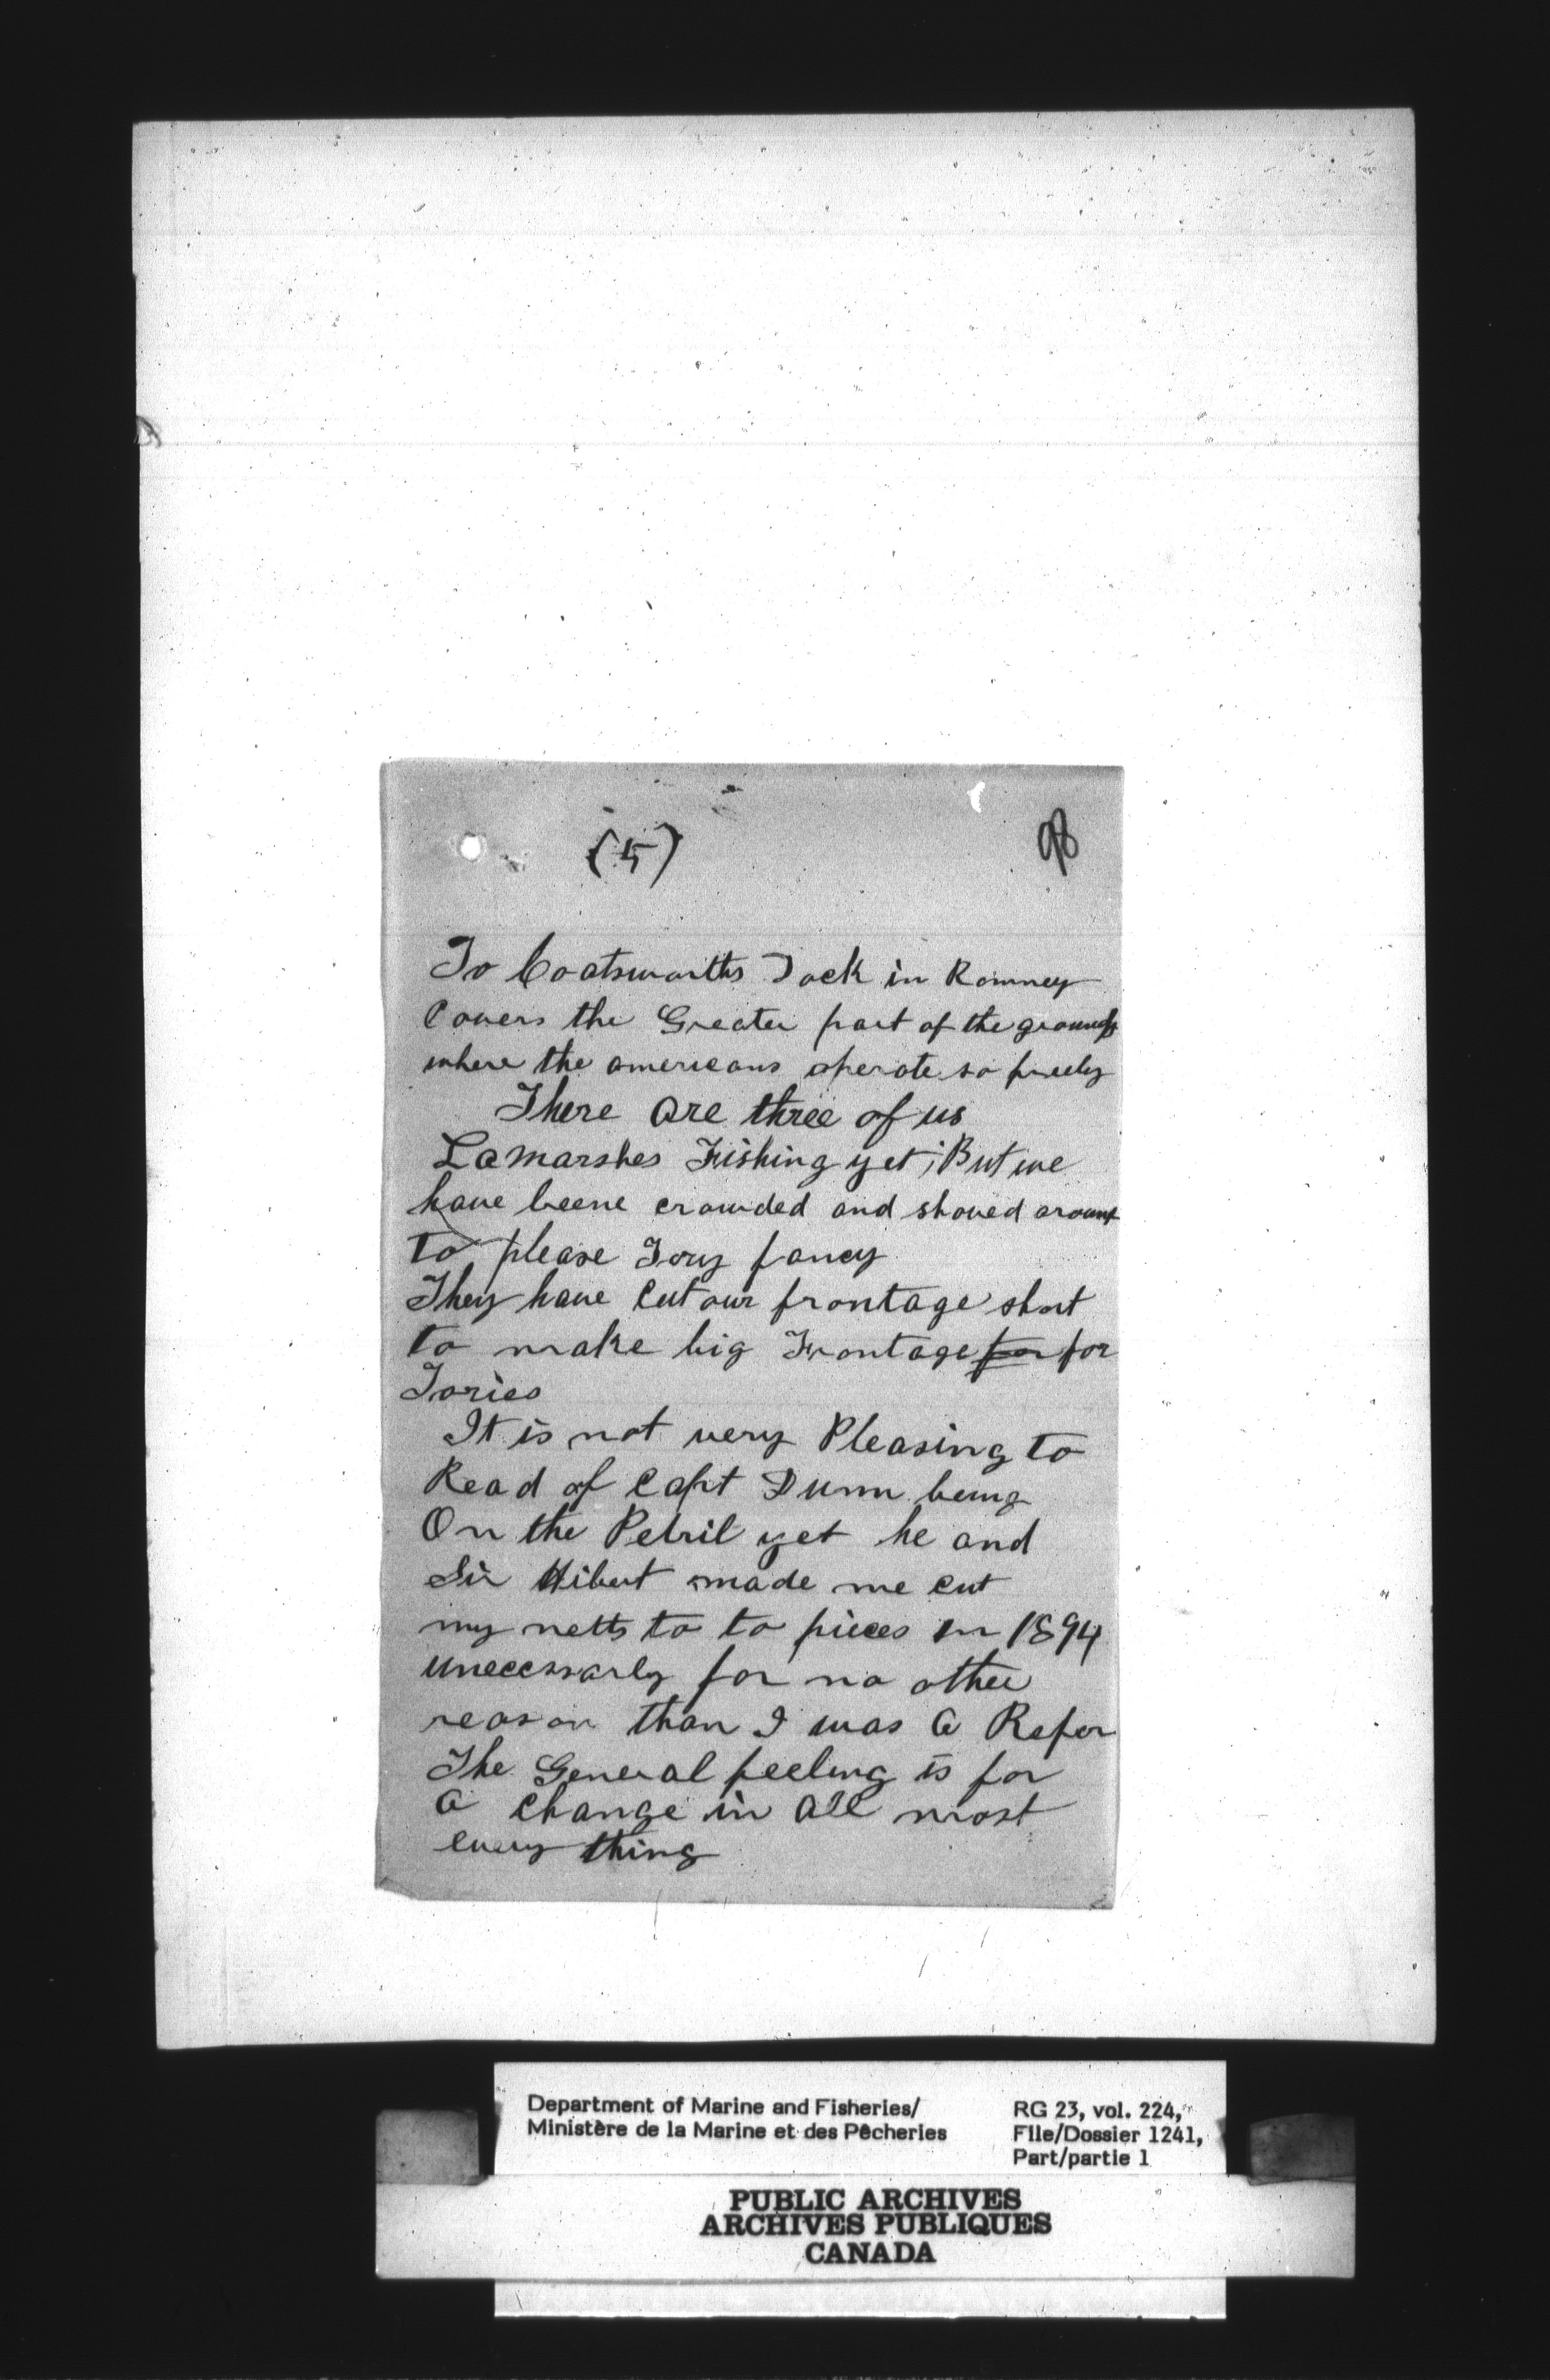 (5)
98
To Coatsworths Dock in Romney
Covers the Greater part of the grounds
where the americans operate so freely
There are three of us
LaMarshes Fishing yet; But we
have beene crowded and shoved around
to please Tory fancy
They have Cut our frontage short
to make big Frontage for for
Tories
It is not very Pleasing to
Read of Capt Dunn being
On the Petril yet he and
Sir Hibert made me cut
my netts to to pieces in 1894
unecessarly for no other
reason than I was a Refor
The General feeling is for
a change in all most
every thing
Department of Marine and Fisheries/
Ministère de la Marine et des Pêcheries
RG 23, vol. 224,
File/Dossier 1241,
Part/partie 1
PUBLIC ARCHIVES
ARCHIVES PUBLIQUES
CANADA